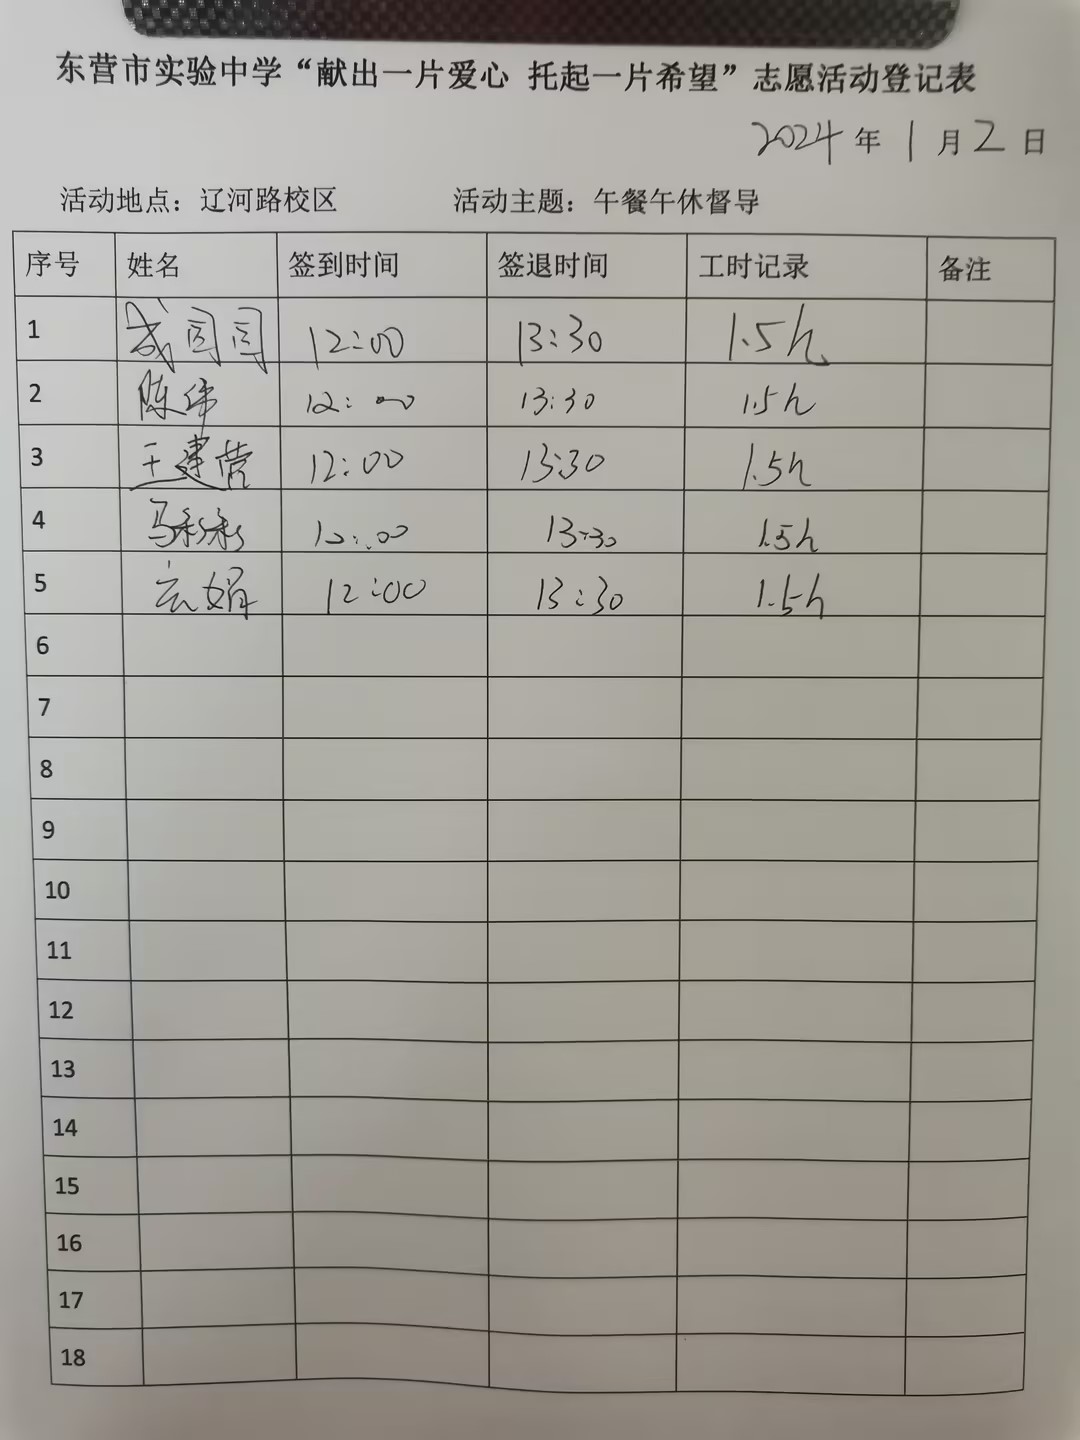 东营市实验中学“献出一片爱心 托起一片希望”志愿活动登记表
2024年1月2日
活动地点：辽河路校区 活动主题：午餐午休督导
序号 姓名 签到时间 签退时间 工时记录 备注
1 12:00 13:30 1.5h
2 陈伟 12:00 13:30 1.5h
3 王建营 12:00 13:30 1.5h
4 马彩彩 12:00 13:30 1.5h
5 云娟 12:00 13:30 1.5h
6
7
8
9
10
11
12
13
14
15
16
17
18